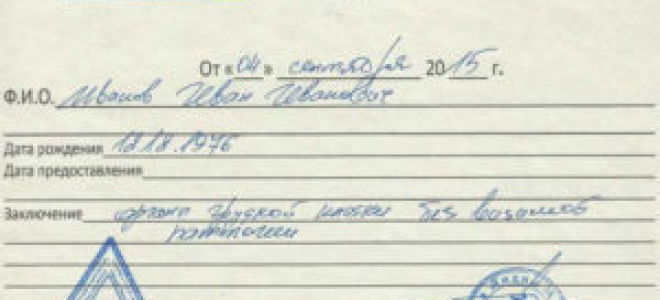 От «04» сентября 2015 г.
Ф.И.О. Иванов Иван Иванович
Дата рождения 12.12.1976
Дата предоставления
Заключение органы грудной клетки без видимой
патологии